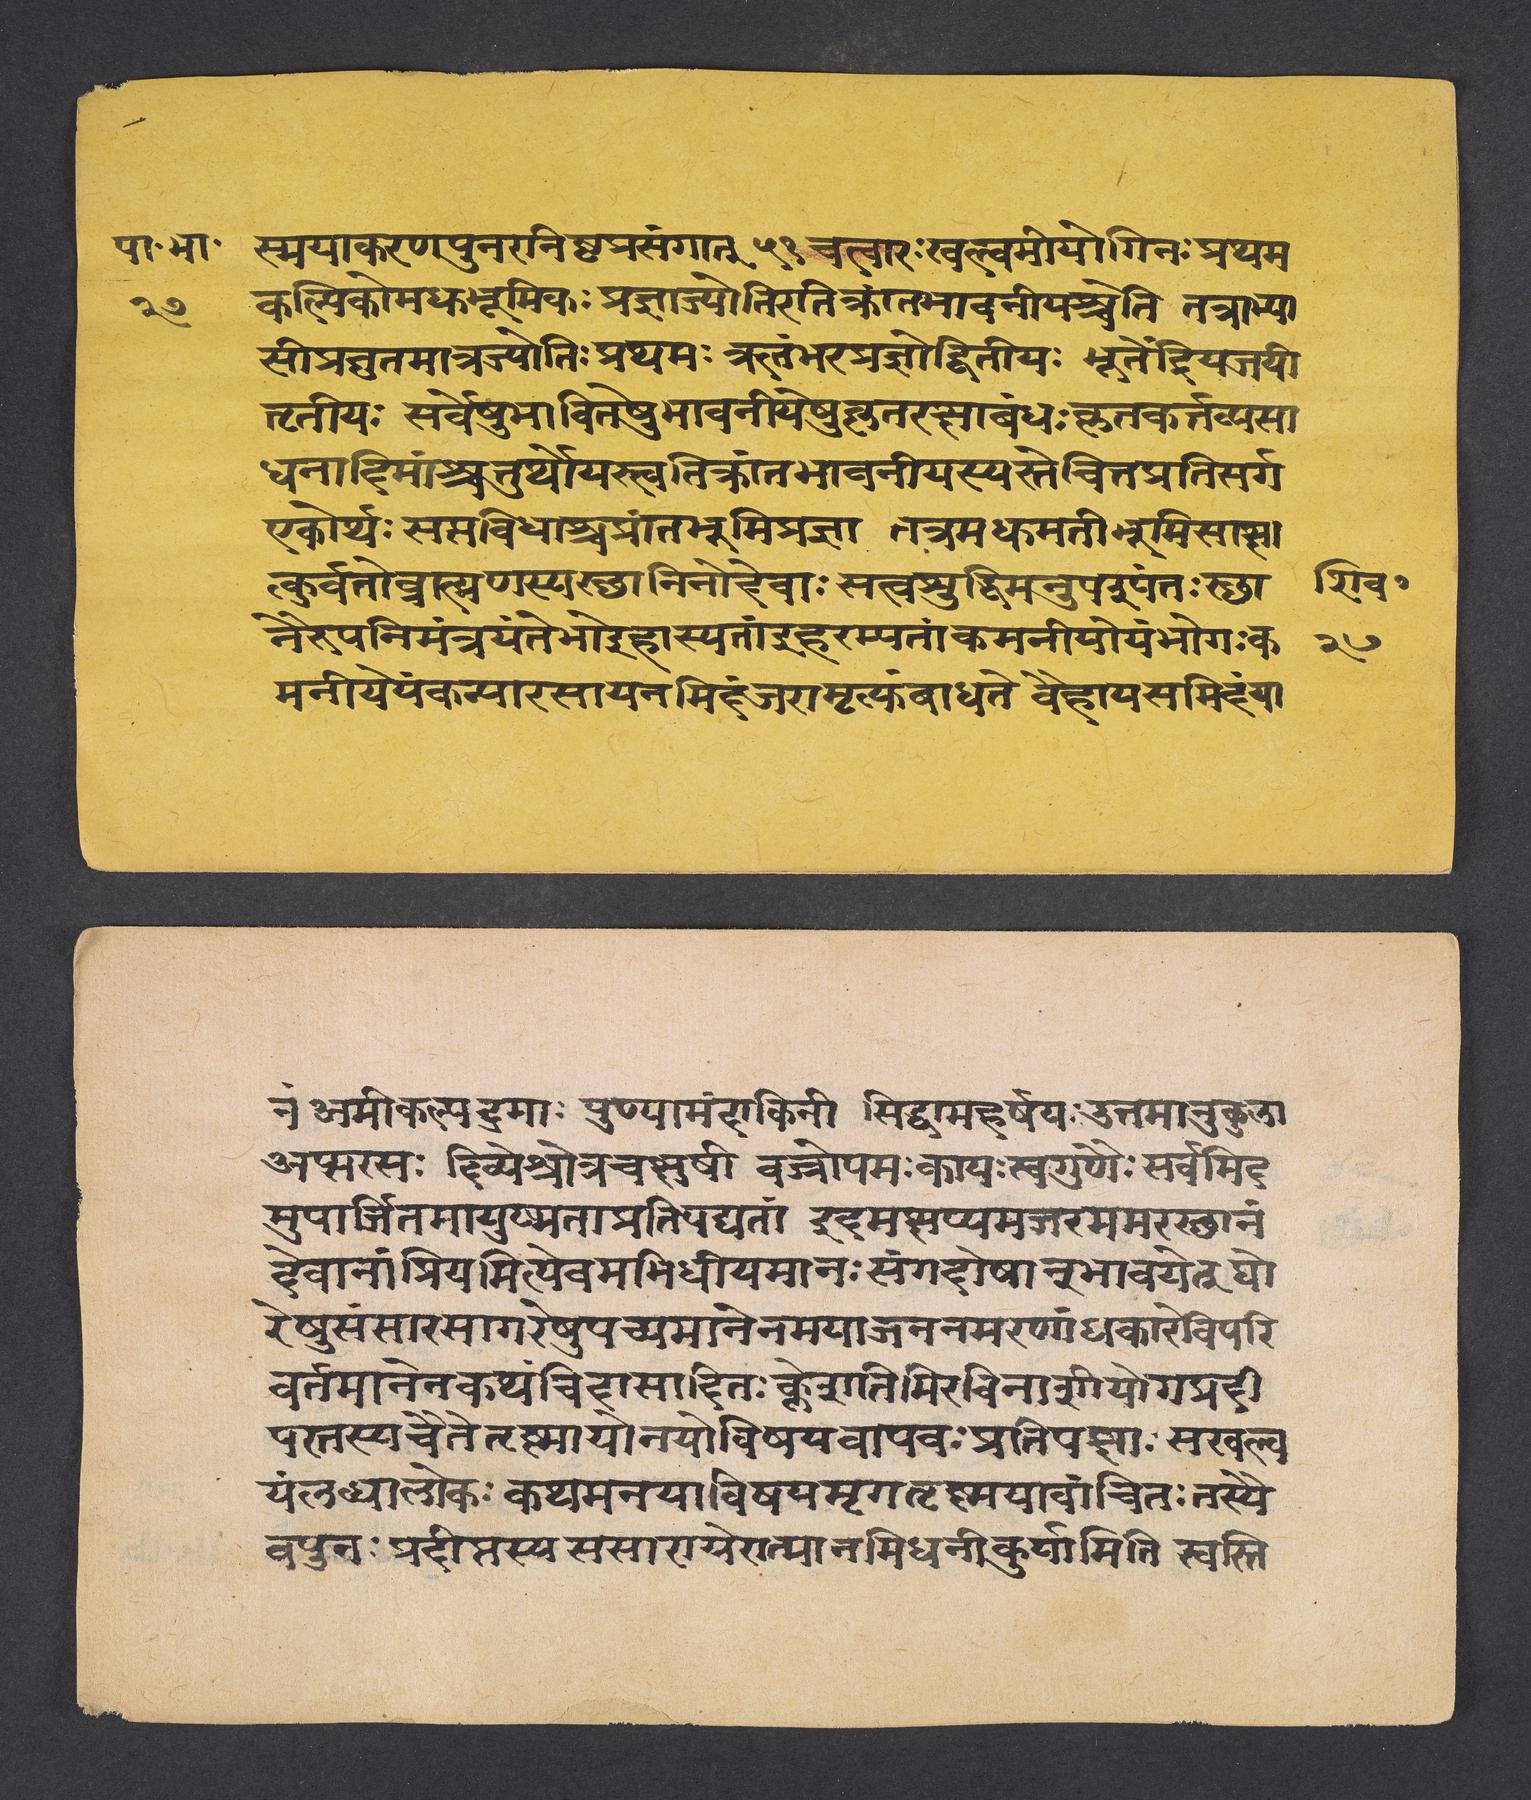 पा॰ भा॰ स्मयाकरणपुनरनिष्टप्रसंगात् ५१ चत्वारः खल्वमीयोगिनः प्रथम
२७ कल्पिकोमधुभूमिकः प्रज्ञाज्योतिरतिक्रांतभावनीयश्चेति तत्राभ्या
सीप्रवृत्तमात्रज्योतिः प्रथमः ऋतंभरप्रज्ञोद्वितीयः भूतेंद्रियजयी
तृतीयः सर्वेषुभावितेषुभावनीयेषुकृतरक्षाबंधः कृतकर्त्तव्यसा
धनादिमांश्चतुर्थोयस्त्वतिक्रांतभावनीयस्यस्तेचित्तप्रतिसर्ग
एकोर्थः सप्तविधाश्चप्रांतभूमिप्रज्ञा तत्रमधुमतीभूमिसाक्षा
त्कुर्वतोब्राह्मणस्यस्थानिनोदेवाः सत्वशुद्धिमनुपश्यंतः स्था शिव॰
नैरुपनिमंत्रयंतेभोइहास्यतांइहरम्यतांकमनीयोयंभोगः क २७
मनीयेयंकन्यारसायनमिदंजरामृत्युंबाधते वैहायसमिदंया
नं अमीकल्पद्रुमाः पुण्यामंदाकिनी सिद्धामहर्षयः उत्तमानुकुला
अप्सरसः दिव्येश्रोत्रचक्षुषी वज्रोपमः कायः स्वगुणैः सर्वमिद
मुपार्जितमायुष्मताप्रतिपद्यतां इदमक्षय्यमजरममरस्थानं
देवानांप्रियमित्येवमभिधीयमानः संगदोषान्भावयेत् घो
रेषुसंसारसागरेषुपच्यमानेनमयाजननमरणांधकारेविपरि
वर्तमानेनकथंचिदासादितः क्लेशतिमिरविनाशीयोगप्रदी
पस्तस्यचैतेतृष्मायोनयोविषयवायवः प्रतिपक्षाः सखल्व
यंलब्धालोकः कथमनयाविषयमृगतृष्मयावांचितः तस्यै
वपुनः प्रदीप्तस्य ससारायेरात्मानमिधनीकुर्यामिति स्वस्ति